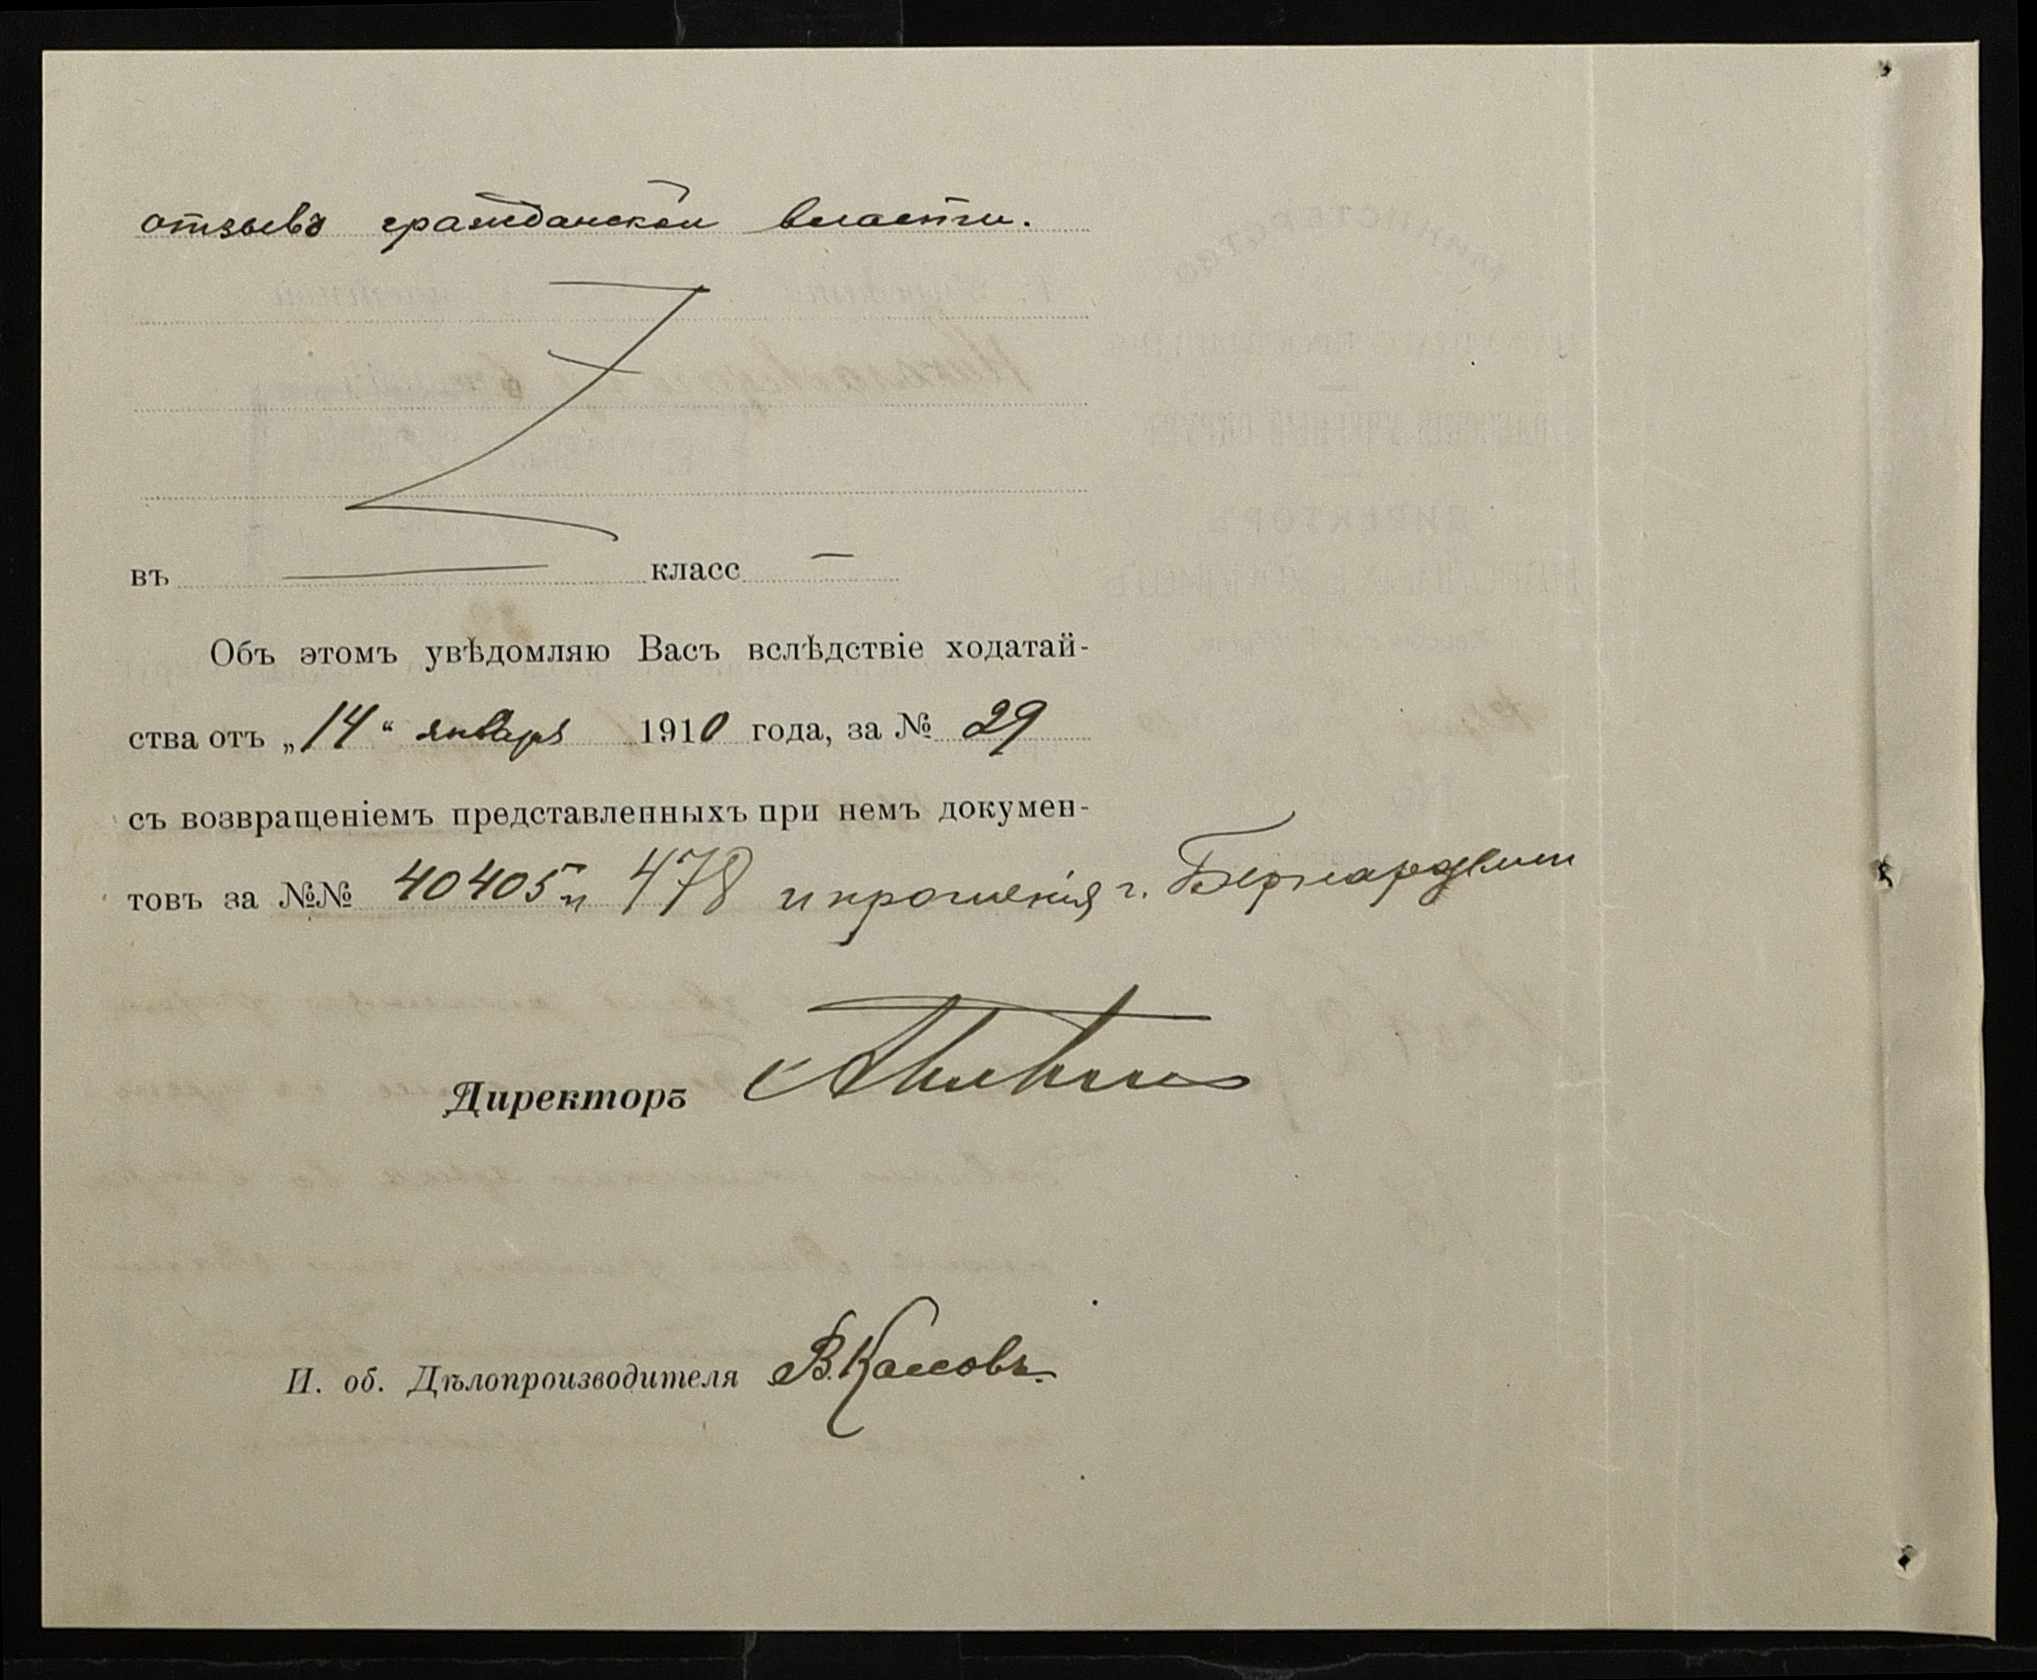 отзывъ гражданской власти.
въ класс
Объ этомъ увѣдомляю Васъ вслѣдствіе ходатай-
ства отъ „14“ января 1910 года, за № 29
съ возвращеніемъ представленныхъ при немъ докумен-
товъ за №№ 40405 и 478 и прошенія г.
Директоръ
И. об. Дѣлопроизводителя В. Кассовъ.